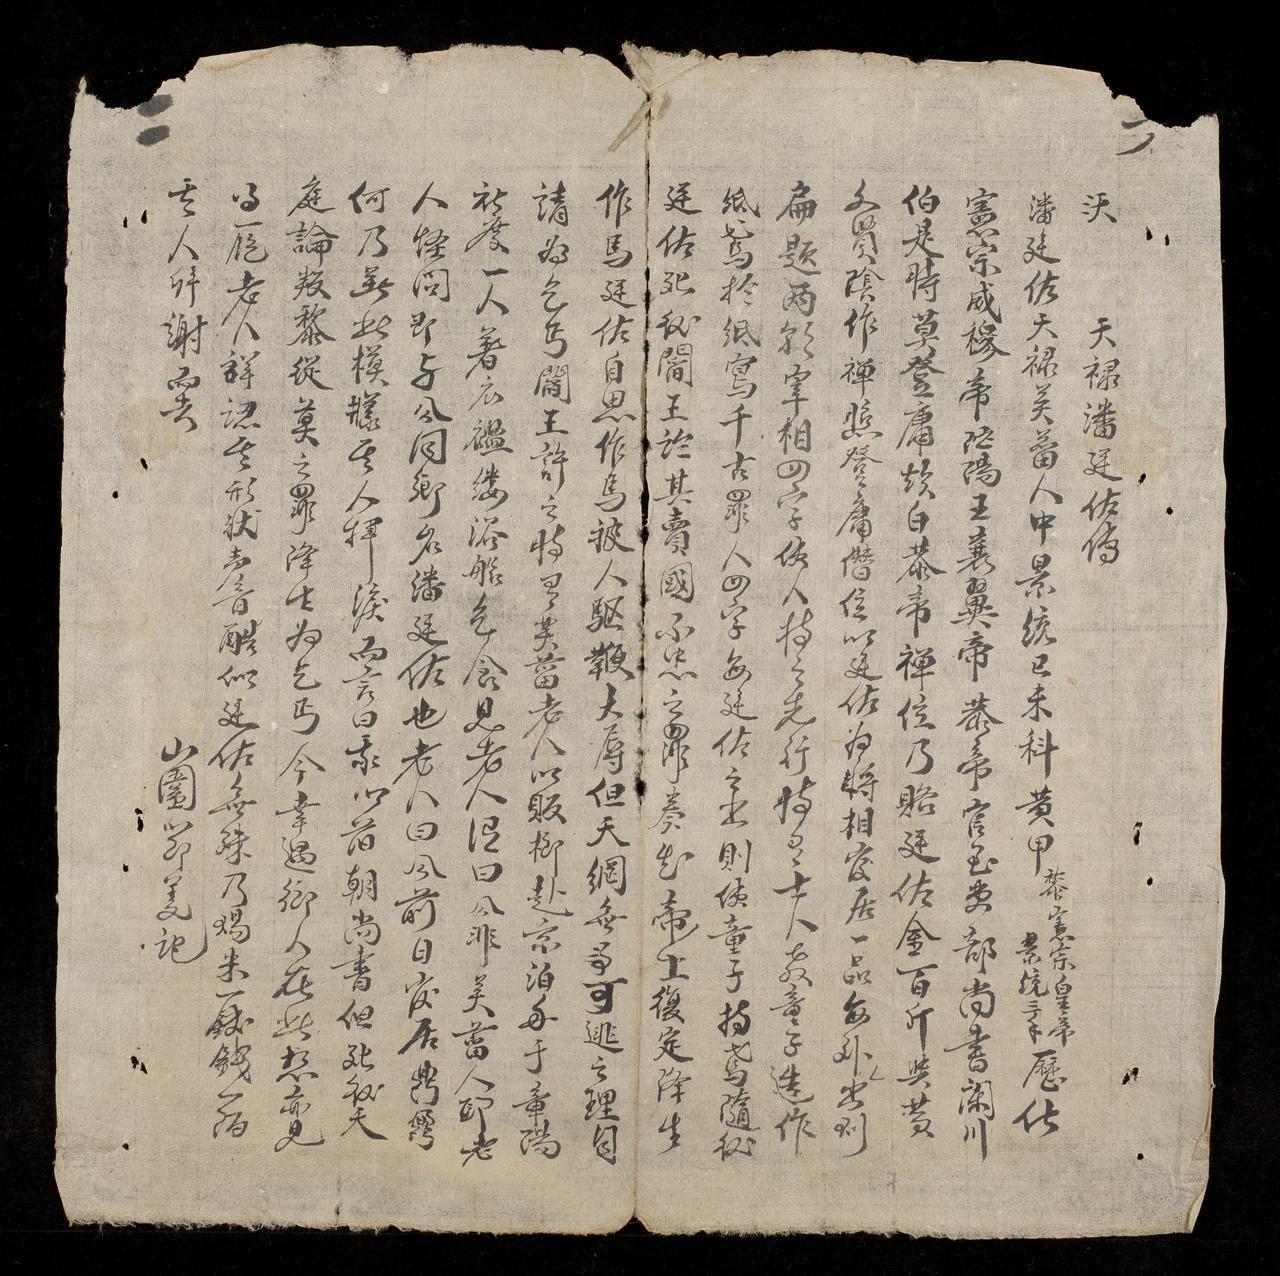 天祿潘廷佑傳
潘廷佑天祿芙蕾人中景統己未科黃甲黎憲宗皇帝景統二年歷仕
憲宗威穆帝陀陽王襄翼帝恭帝官至吏部尚書蘭川
伯是時莫登庸欲自恭帝禪位乃賂廷佑金百斤與黃
文贊陰作禪照登庸僭位以廷佑為將相宦居一品每外出則
扁題兩朝宰相四字使人持之先行時有士人教童子造作
紙鳶於紙寫千古罪人四字每廷佑之出則使童子持鳶隨後
廷佑死後閻王論其賣國不忠之罪奏知帝上復定降生
作馬廷佑自思作馬被人驅鞭大辱但天網無可逃之理因
請為乞丐閻王許之時有芙蕾老人以販柳赴京泊舟于章陽
社度一人著衣襤縷沿船乞食見老人泣曰公非芙蕾人耶老
人怪問即與公同鄉名潘廷佑也老人曰公前日宦居鼎鼐
何乃若此模樣其人揮淚而言曰我以前朝尚書但死後天
庭論叛黎從莫之罪降生為乞丐今幸遇鄉人在此想亦見
老人詳認其形狀声音酷似廷佑無殊乃賜米一錢一陌
其人拜謝而去
山圍節差記